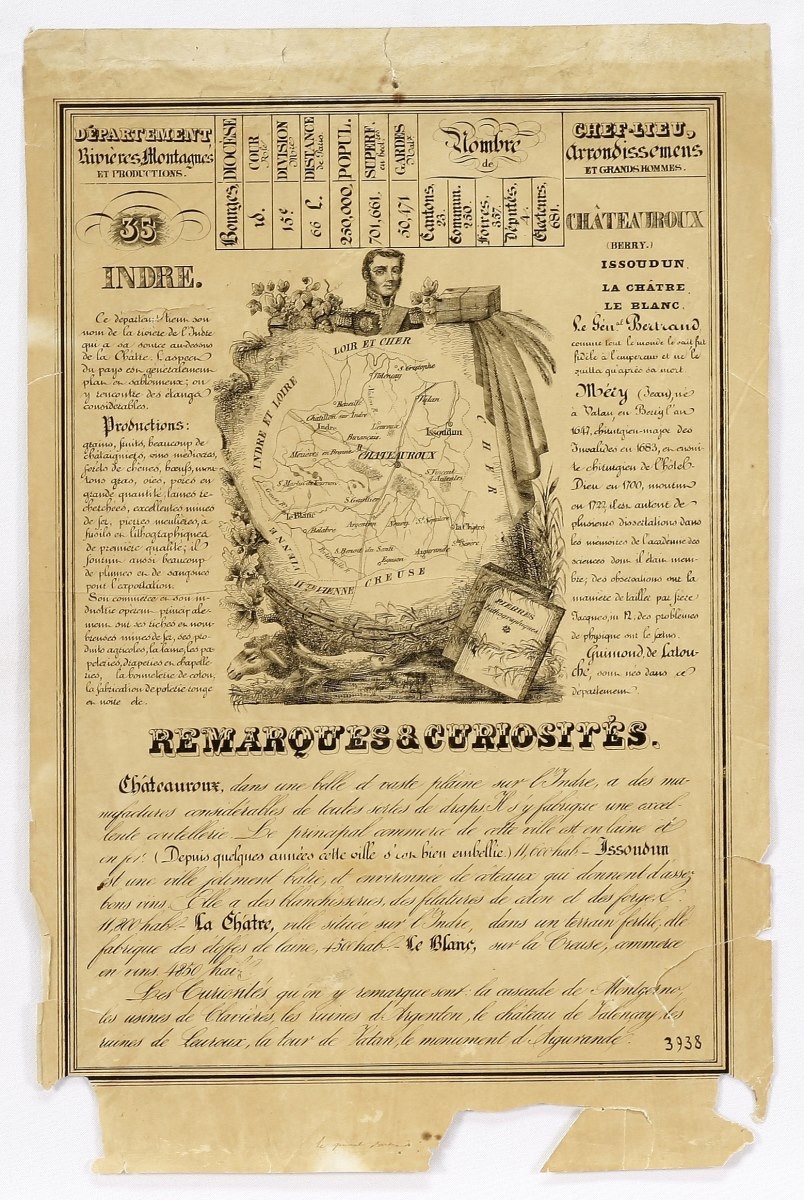 DÉPARTEMENT
Rivières Montagnes
ET PRODUCTIONS.
35
INDRE.
Bourges, DIOCÈSE
id. COUR Rle
15e DIVISION Mre
66 L. DISTANCE de Paris.
250,000, POPUL.
701,661, SUPERF. en hect.
50,471 GARDES Naux
Nombre
de
Cantons, 23.
Commun. 250.
Foires, 357.
Députés, 4.
Electeurs, 681.
CHEF-LIEU,
Arrondissemens
ET GRANDS HOMMES.
CHÂTEAUROUX
(BERRY.)
ISSOUDUN
LA CHÂTRE
LE BLANC.
Ce départem. tient son
nom de la rivière de l'Indre
qui a sa source au dessous
de la Châtre. L'aspect
du pays est généralement
plan et sablonneux; on
y rencontre des étangs
considérables.
Productions:
grains, fruits, beaucoup de
châtaigniers, vins médiocres,
forêts de chênes, bœufs, mou-
tons gras, oies, porcs en
grande quantité, laines re-
cherchées, excellentes mines
de fer, pierres meulières, à
fusils et lithographiques
de première qualité; il
fournit aussi beaucoup
de plumes et de sangsues
pour l'exportation.
Son commerce et son in-
dustrie opèrent principale-
ment sur ses riches et nom-
breuses mines de fer, ses pro-
duits agricoles, la laine, les pa-
peteries, draperies et chapelle-
ries, la bonneterie de coton,
la fabrication de poterie rouge
et noire etc.
LOIR ET CHER
INDRE ET LOIRE
CHER
VIENNE
Hte VIENNE
CREUSE
St Christophe
Valençay
Vatan
Châtillon sur Indre
Levroux
Issoudun
Buzançais
CHATEAUROUX
Mézières en Brenne
St Gaultier
le Blanc
Bélabre
Argenton
la Châtre
St Benoit du Sault
Aigurande
Éguzon
PIERRES
lithographiques
Le Génal Bertrand,
comme tout le monde le sait fut
fidèle à l'empereur et ne le
quitta qu'après sa mort
Méry (Jean), né
à Vatan en Berry l'an
1647, chirurgien-major des
Invalides en 1683, et ensui-
te chirurgien de l'hôtel-
Dieu en 1700, mourut
en 1722, il est auteur de
plusieurs dissertations dans
les mémoires de l'académie des
sciences dont il était mem-
bre; des observations sur la
manière de tailler par frère
Jacques, in 12. des problèmes
de physique sur le fœtus.
Guimond, de Latou-
che, sont nés dans ce
département.
REMARQUES & CURIOSITÉS.
Châteauroux, dans une belle et vaste plaine sur l'Indre, a des ma-
nufactures considérables de toutes sortes de draps. Il s'y fabrique une excel-
lente coutellerie. Le principal commerce de cette ville est en laine et
en fer. (Depuis quelques années cette ville s'est bien embellie.) 11,600 hab. – Issoudun
est une ville joliment bâtie, et environnée de coteaux qui donnent d'assez
bons vins. Elle a des blanchisseries, des filatures de coton et des forges.
11,200 hab. – La Châtre, ville située sur l'Indre, dans un terrain fertile, elle
fabrique des étoffes de laine, 4500 hab. – Le Blanc, sur la Creuse, commerce
en vins 4850 hab.
Les Curiosités qu'on y remarque sont: la cascade de Montgerno,
les usines de Clavières, les ruines d'Argenton, le château de Valençay, les
ruines de Levroux, la tour de Vatan, le monument d'Aigurande.
3938